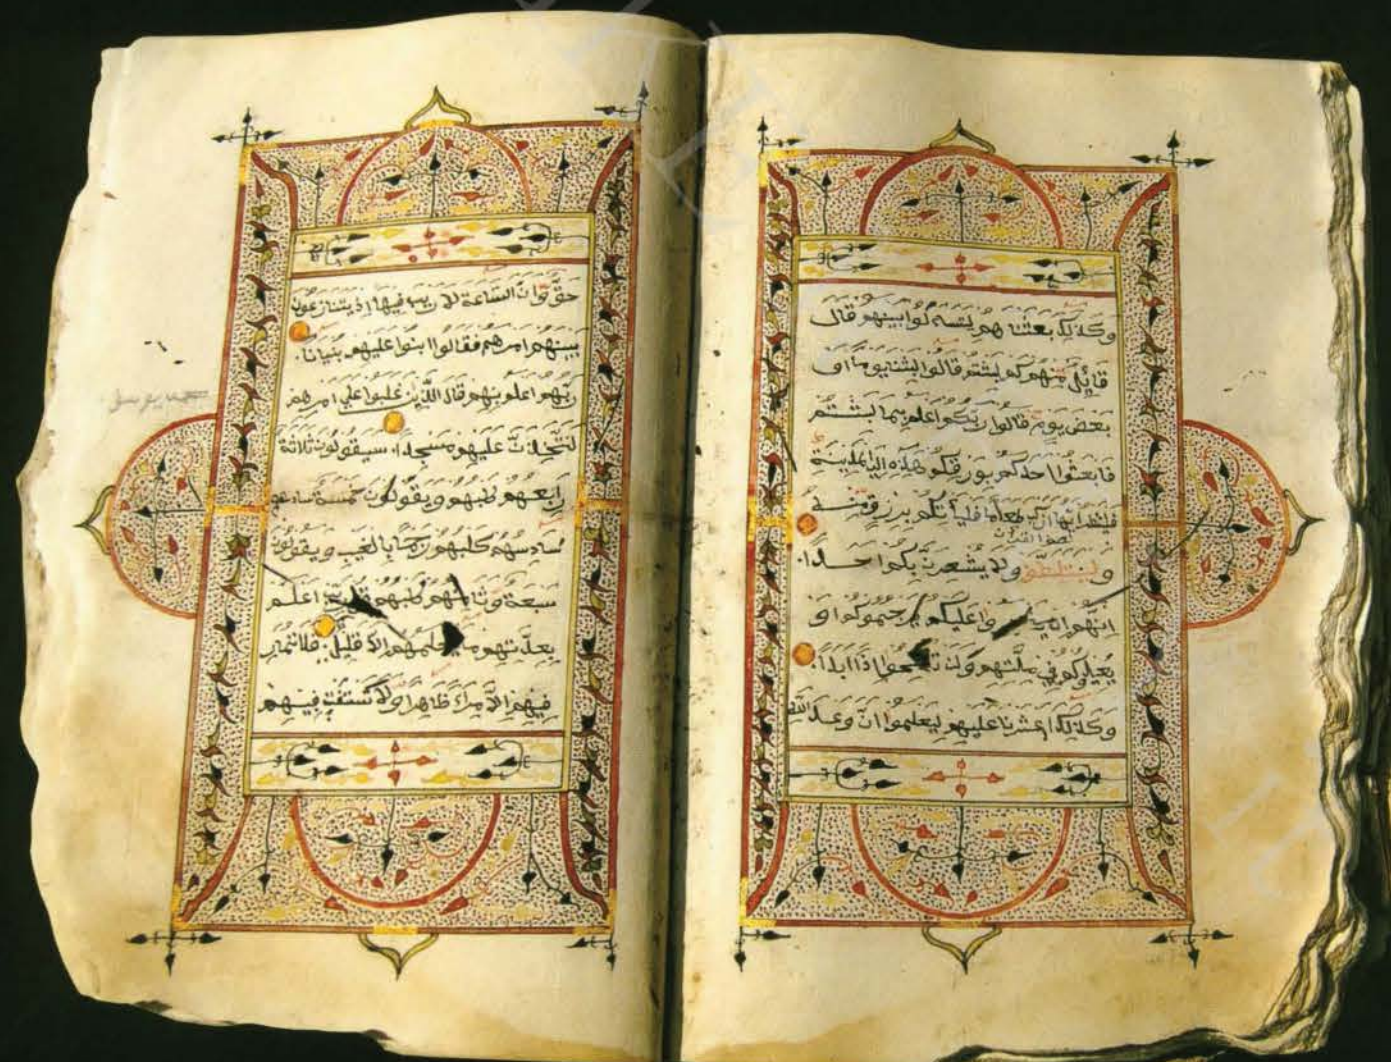 وَكَذَلِكَ بَعَثْنَاهُمْ لِيَتَسَاءَلُوا بَيْنَهُمْ قَالَ
قَائِلٌ مِنْهُمْ كَمْ لَبِثْتُمْ قَالُوا لَبِثْنَا يَوْمًا أَوْ
بَعْضَ يَوْمٍ قَالُوا رَبُّكُمْ أَعْلَمُ بِمَا لَبِثْتُمْ
فَابْعَثُوا أَحَدَكُمْ بِوَرِقِكُمْ هَذِهِ إِلَى الْمَدِينَةِ
فَلْيَنْظُرْ أَيُّهَا أَزْكَى طَعَامًا فَلْيَأْتِكُمْ بِرِزْقٍ مِنْهُ
نصف القرآن
وَلْيَتَلَطَّفْ وَلَا يُشْعِرَنَّ بِكُمْ أَحَدًا
إِنَّهُمْ إِنْ عَلَيْكُمْ يَرْجُمُوكُمْ أَوْ
يُعِيدُوكُمْ فِي مِلَّتِهِمْ وَلَنْ تُفْلِحُوا إِذًا أَبَدًا
وَكَذَلِكَ أَعْثَرْنَا عَلَيْهِمْ لِيَعْلَمُوا أَنَّ وَعْدَ اللَّهِ
حَقٌّ وَأَنَّ السَّاعَةَ لَا رَيْبَ فِيهَا إِذْ يَتَنَازَعُونَ
بَيْنَهُمْ أَمْرَهُمْ فَقَالُوا ابْنُوا عَلَيْهِمْ بُنْيَانًا
رَبُّهُمْ أَعْلَمُ بِهِمْ قَالَ الَّذِينَ غَلَبُوا عَلَى أَمْرِهِمْ
لَنَتَّخِذَنَّ عَلَيْهِمْ مَسْجِدًا سَيَقُولُونَ ثَلَاثَةٌ
رَابِعُهُمْ كَلْبُهُمْ وَيَقُولُونَ خَمْسَةٌ
سَادِسُهُمْ كَلْبُهُمْ رَجْمًا بِالْغَيْبِ وَيَقُولُونَ
سَبْعَةٌ وَثَامِنُهُمْ كَلْبُهُمْ قُلْ رَبِّي أَعْلَمُ
بِعِدَّتِهِمْ مَا يَعْلَمُهُمْ إِلَّا قَلِيلٌ فَلَا تُمَارِ
فِيهِمْ إِلَّا مِرَاءً ظَاهِرًا وَلَا تَسْتَفْتِ فِيهِمْ